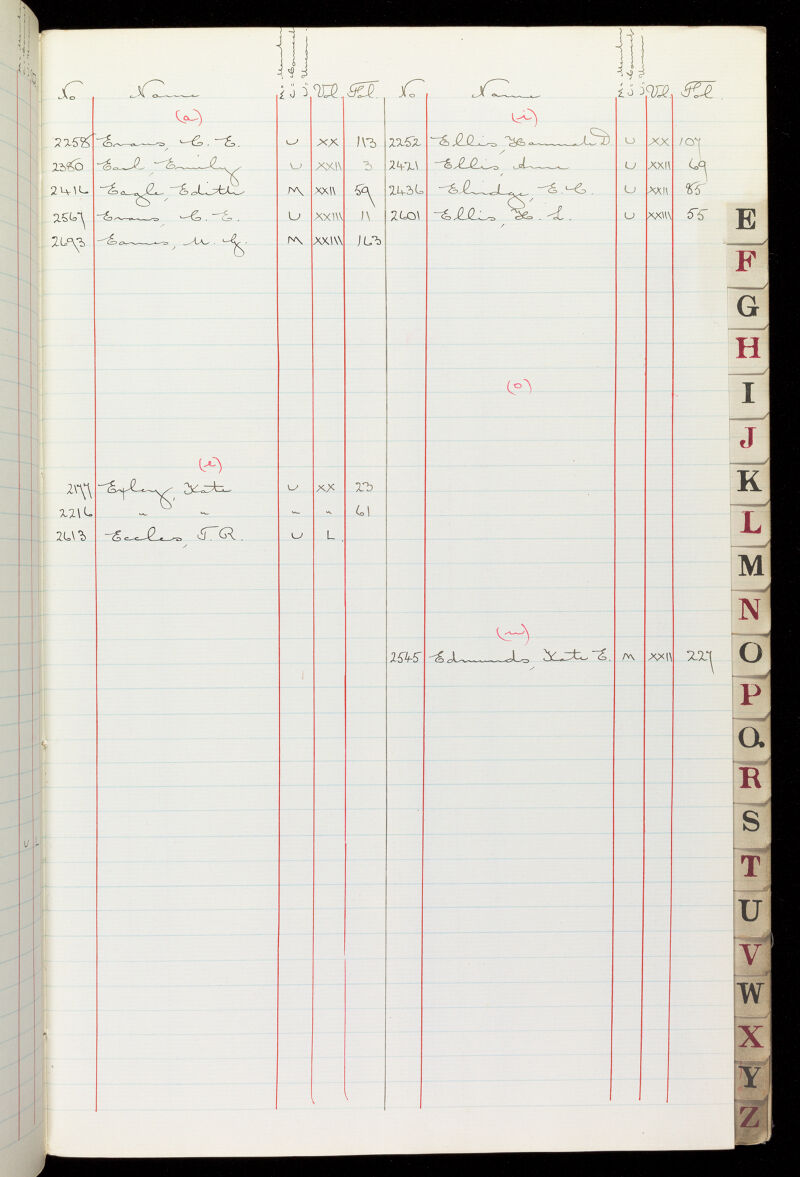 M: Member
C: Council
U: Union
No Name Vol Fol.
(a)
2258 Evans, C. E. U XX 113
2380 Earl, Emily U XXII 3
2416 Eagle, Edith M XXII 59
2567 Evans, C. E. U XXIII 11
2693 Eames, M. G. M XXIII 163
(e)
2177 Exley, Kate U XX 23
2216 " " " " 61
2613 Eccles, T. R. U L.
No Name Vol. Fol.
(i)
2252 Ellis, Hannah D. U XX 107
2421 Ellis, Anne U XXII 69
2436 Elridge, E. C. U XXII 85
2601 Ellis, H. L. U XXIII 55
(o)
(u)
2545 Edmunds, Kate E. M XXII 227
E
F
G
H
I
J
K
L
M
N
O
P
Q.
R
S
T
U
V
W
X
Y
Z